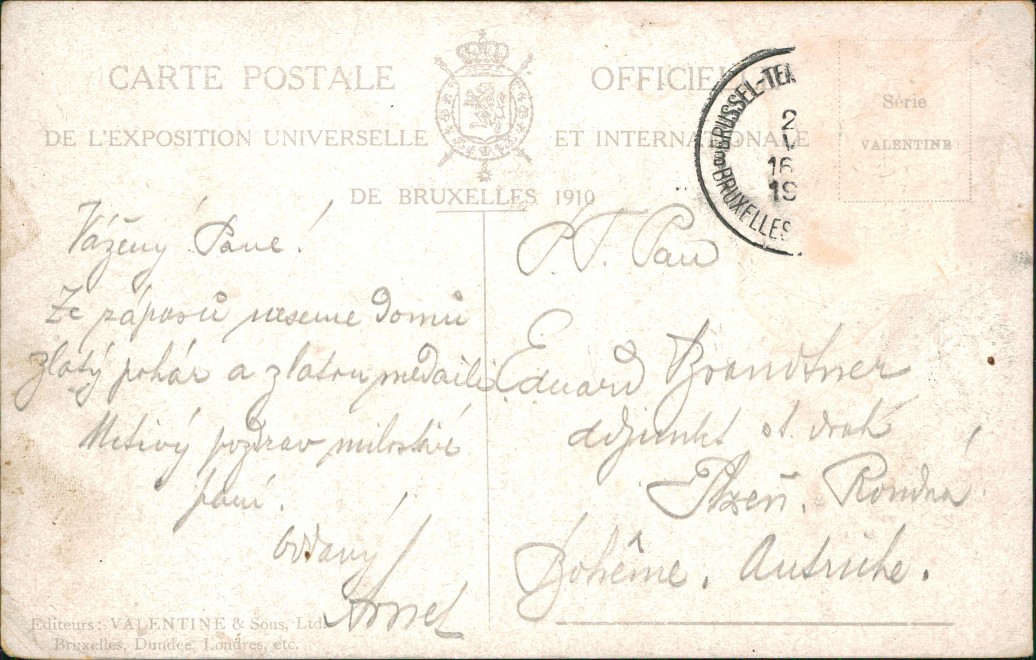 CARTE POSTALE OFFICIEL
DE L'EXPOSITION UNIVERSELLE ET INTERNATIONALE
DE BRUXELLES 1910
BRUSSEL-TEN
2
V
16
19
BRUXELLES
Série
VALENTINE
Vážený Pane!
Ze zápasů neseme domů
zlatý pohár a zlatou medaili
Uctivý pozdrav milostivé
paní.
Oddaný
P. T. Pan
Eduard Brandtner
adjunkt st. drah
Plzeň. Rondná
Bohême. Autriche.
Editeurs: VALENTINE & Sons, Ltd.
Bruxelles, Dundee, Londres, etc.